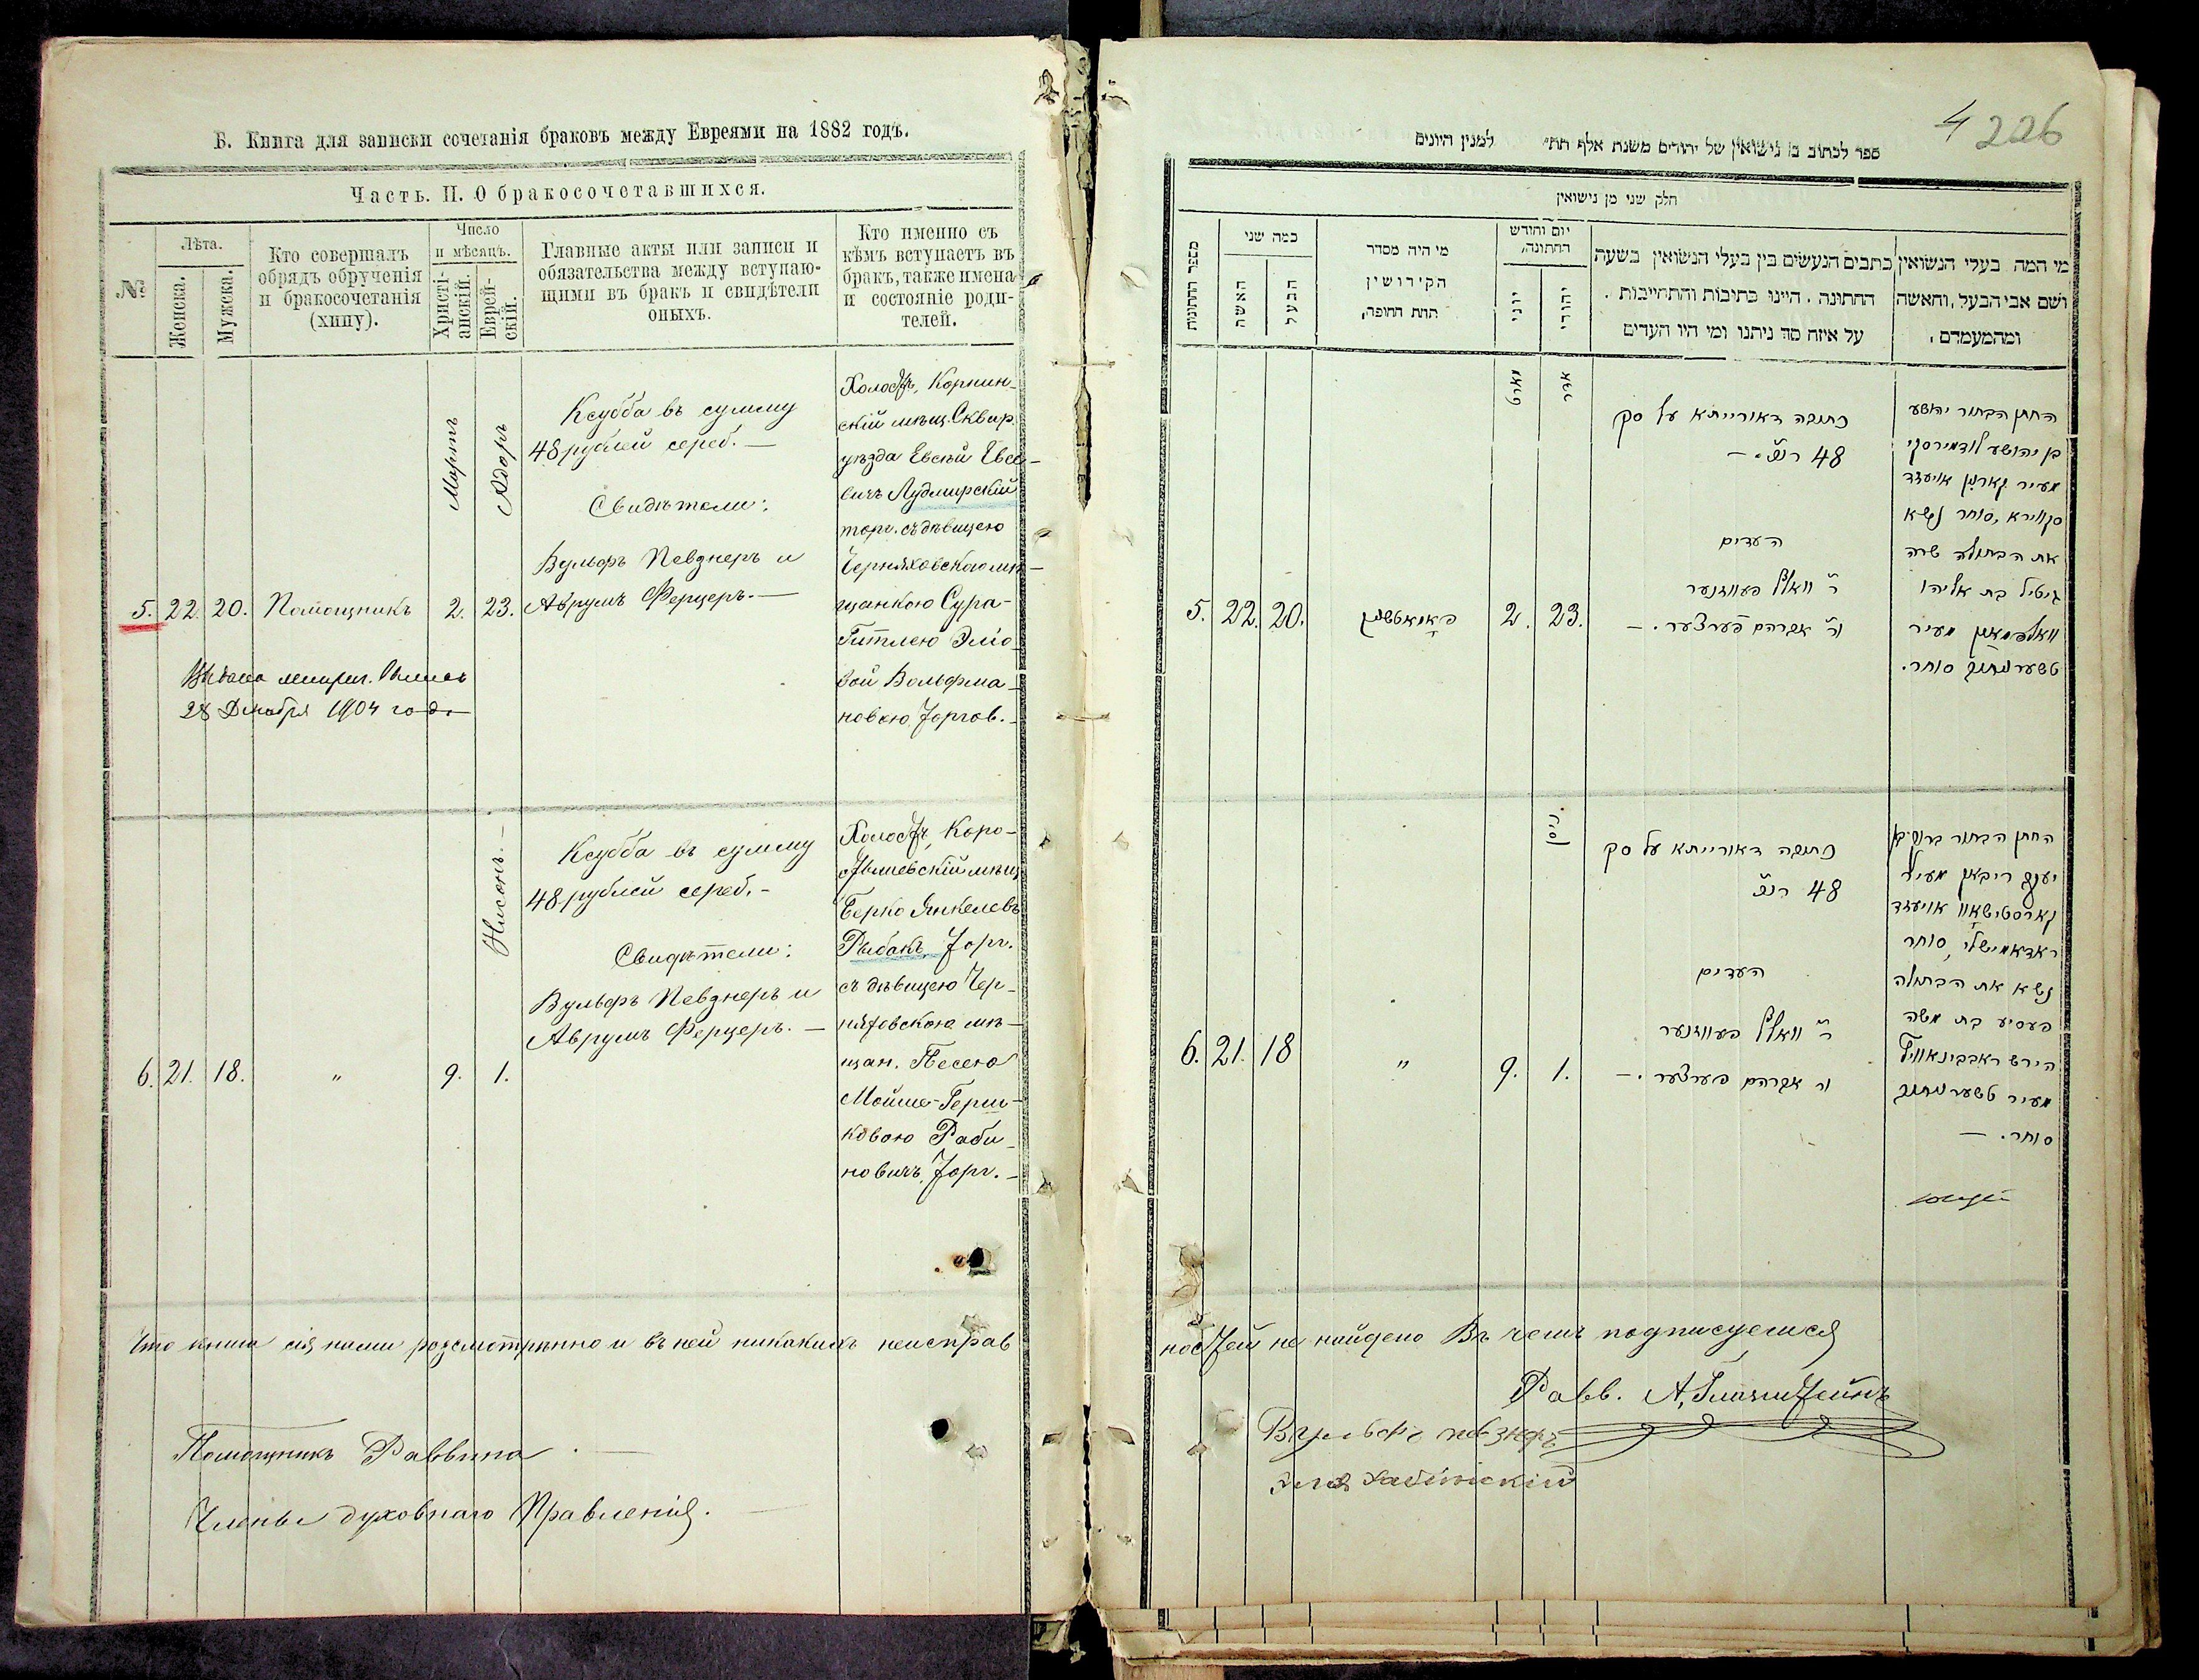 Б. Книга для записки сочетанія браковъ между Евреями на 1882 годъ.
Часть. II. О бракосочетавшихся.
№
Лѣта.
Женска.
Мужеска.
Кто совершалъ
обрядъ обрученія
и бракосочетанія
(хипу).
Число
и мѣсяцъ.
Христі-
анскій.
Еврей-
скій.
Главные акты или записи и
обязательства между вступаю-
щими въ бракъ и свидѣтели
оныхъ.
Кто именно съ
кѣмъ вступаетъ въ
бракъ, также имена
и состояніе роди-
телей.
Мартъ
Адоръ
5. 22. 20. Помощникъ 2. 23.
Ксубба въ сумму
48 рублей сереб. —
Свидѣтели:
Вульфъ Певзнеръ и
Аврумъ Ферцеръ. —
Холостъ, Корнин-
скій мѣщ. Сквир.
уѣзда Евсѣй Евсе-
вичъ Лудмирскій
торг. съ дѣвицею
Черняховскою мѣ-
щанкою Сура-
Гитлею Эліо-
вой Вольфма-
новою, торгов. -
28 Декабря 1904 год.
Нисонъ. —
6. 21. 18. „ 9. 1.
Ксубба въ сумму
48 рублей сереб. -
Свидѣтели:
Вульфъ Певзнеръ и
Аврумъ Ферцеръ. —
Холостъ, Коро-
стышевскій мѣщ
Берко Янкелевъ
Рыбакъ, торг.
съ дѣвицею Чер-
няховскою мѣ-
щан. Песею
Мойше-Герш-
ковою Раби-
новичъ, торг. -
Что книга сія нами розсмотрѣнно и въ ней никакихъ неисправ
Помощникъ Раввина
Члены духовнаго Правленія.
4 226
ספר לכתוב בו נישואין של יהודים משנת אלף תת״ למנין היונים
חלק שני מן נישואין
מספר החתונות
כמה שני
האשה
הבעל
מי היה מסדר
הקידושין
תחת החופה,
יום וחודש
החתונה,
יוני
יהודי
כתבים הנעשים בין בעלי הנשואין בשעה
החתונה. היינו כתובות והתחייבות.
על איזה סך ניתנו ומי היו העדים
מי המה בעלי הנשואין
ושם אבי הבעל, והאשה
ומהמעמדם,
מארט
אדר
5. 22. 20. 2. 23.
כתובה דאורייתא על סק
48 רו״כ. —
העדים
ר׳ וואלף פעווזנער
ור׳ אברהם פערצער. —
החתן הבחור יהושע
בן יהושע לודמירסקי
מעיר קארנין אויעזד
סקווירא, סוחר נשא
את הבתולה שרה
גיטיל בת אליהו
וואלפמאן מעיר
טשערניחוב סוחר.
ניסן.
6. 21. 18 „ 9. 1.
כתובה דאורייתא על סק
48 רו״כ
העדים
ר׳ וואלף פעווזנער
ור׳ אברהם פערצער. —
יענקב ריבאק מעיר
קארסטישאוו אויעזד
ראדאמישלי, סוחר
נשא את הבתולה
פעסיע בת משה
הירש ראבינאוויץ
מעיר טשערניחוב
סוחר. —
ностей не найдено Въ чемъ подписуемся
Равв. А. Глазштейнъ
Вульфъ певзнеръ